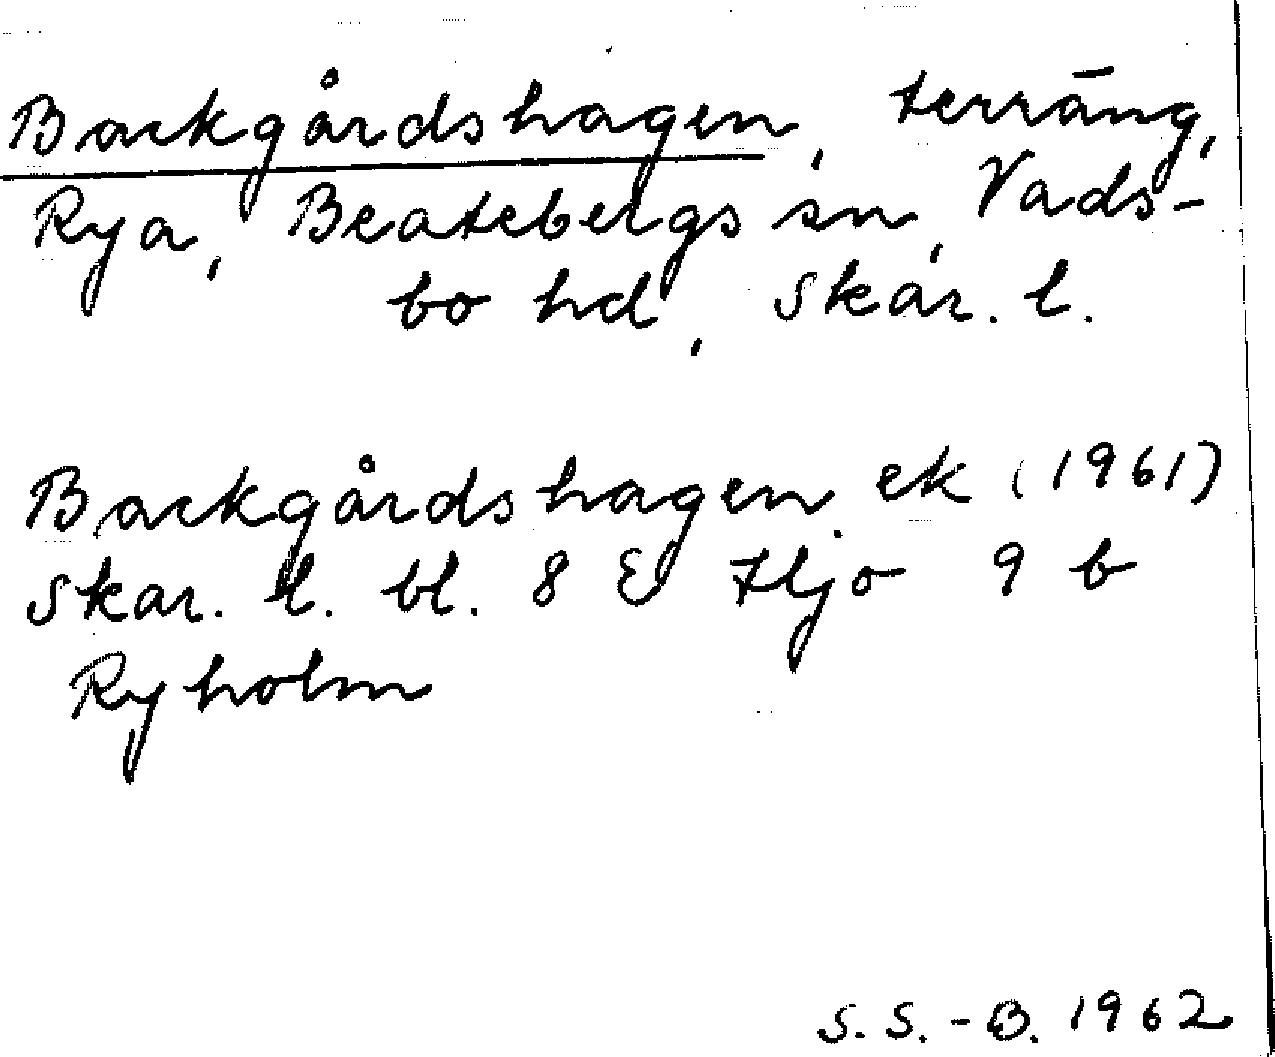 Backgårdshagen, terräng,
Rya, Beatebergs sn, Vads-
bo hd, Skar. l.
Backgårdshagen. ek (1961)
Skar. l. bl. 8 E Hjo 9 b
Ryholm
S. S.-B. 1962